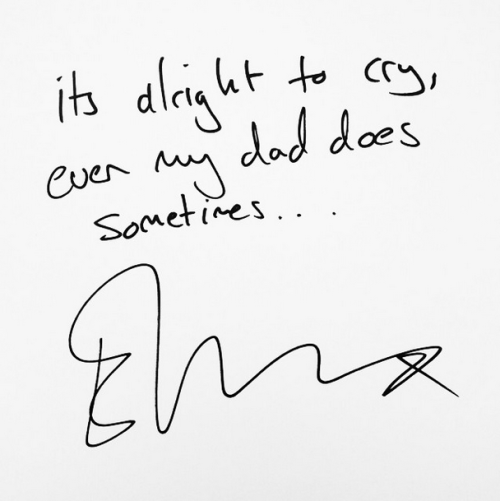 its alright to cry,
even my dad does
sometimes....